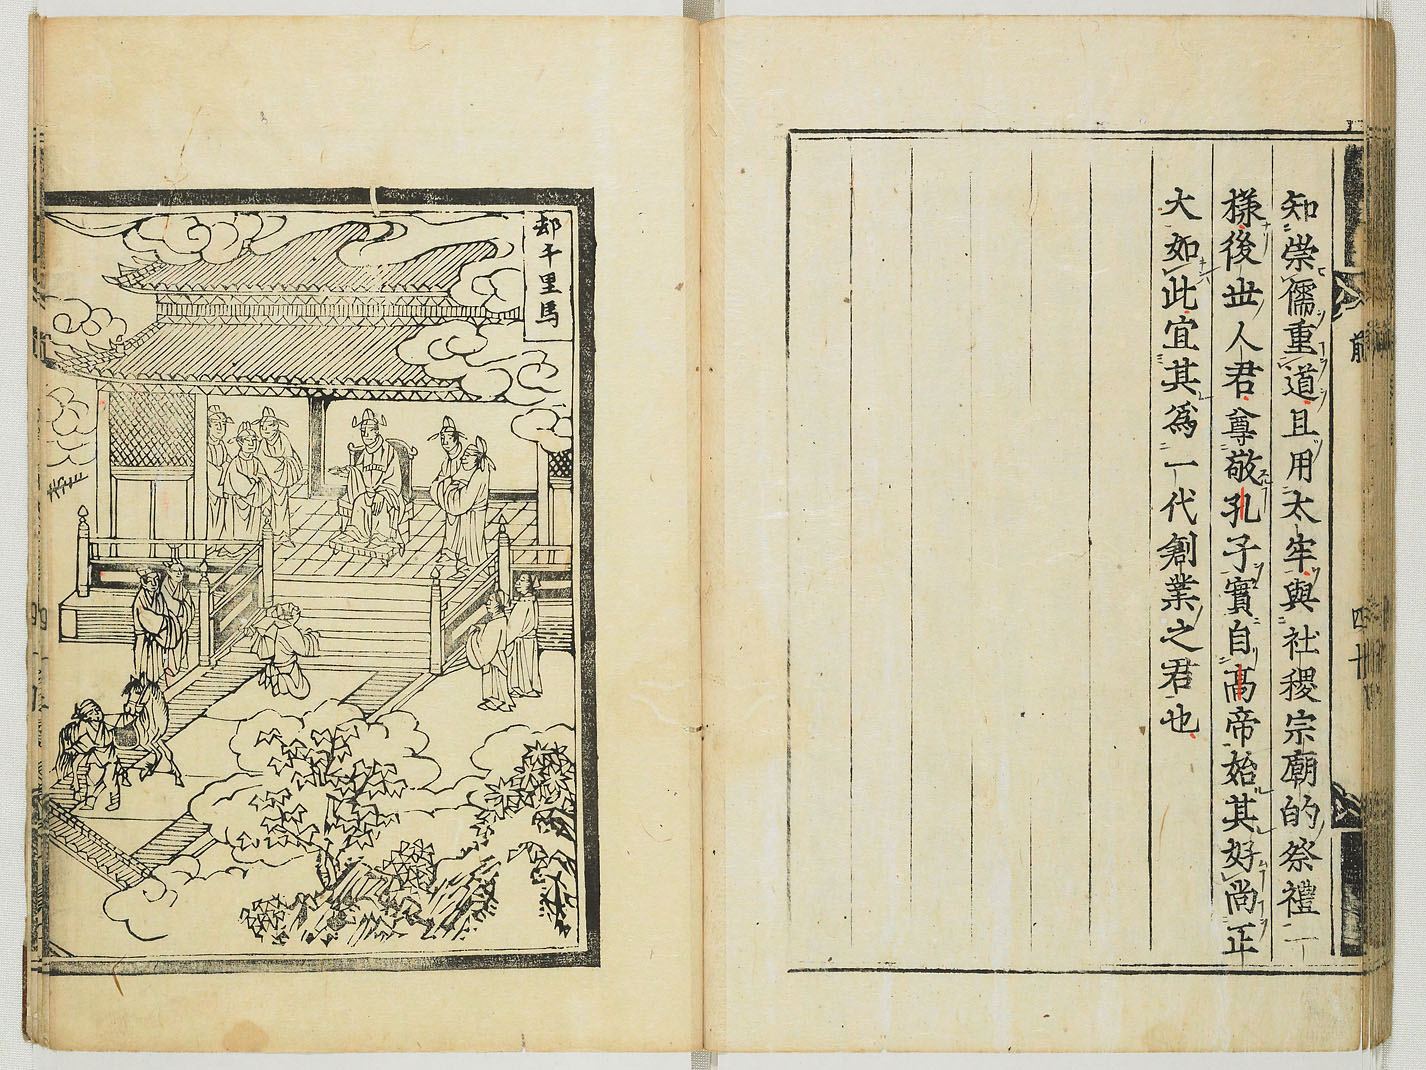 知崇儒重道且用太牢與社稷宗廟的祭禮一
樣後世人君尊敬孔子實自高帝始其好尚正
大如此宜其爲一代創業之君也
前
四十
却千里馬